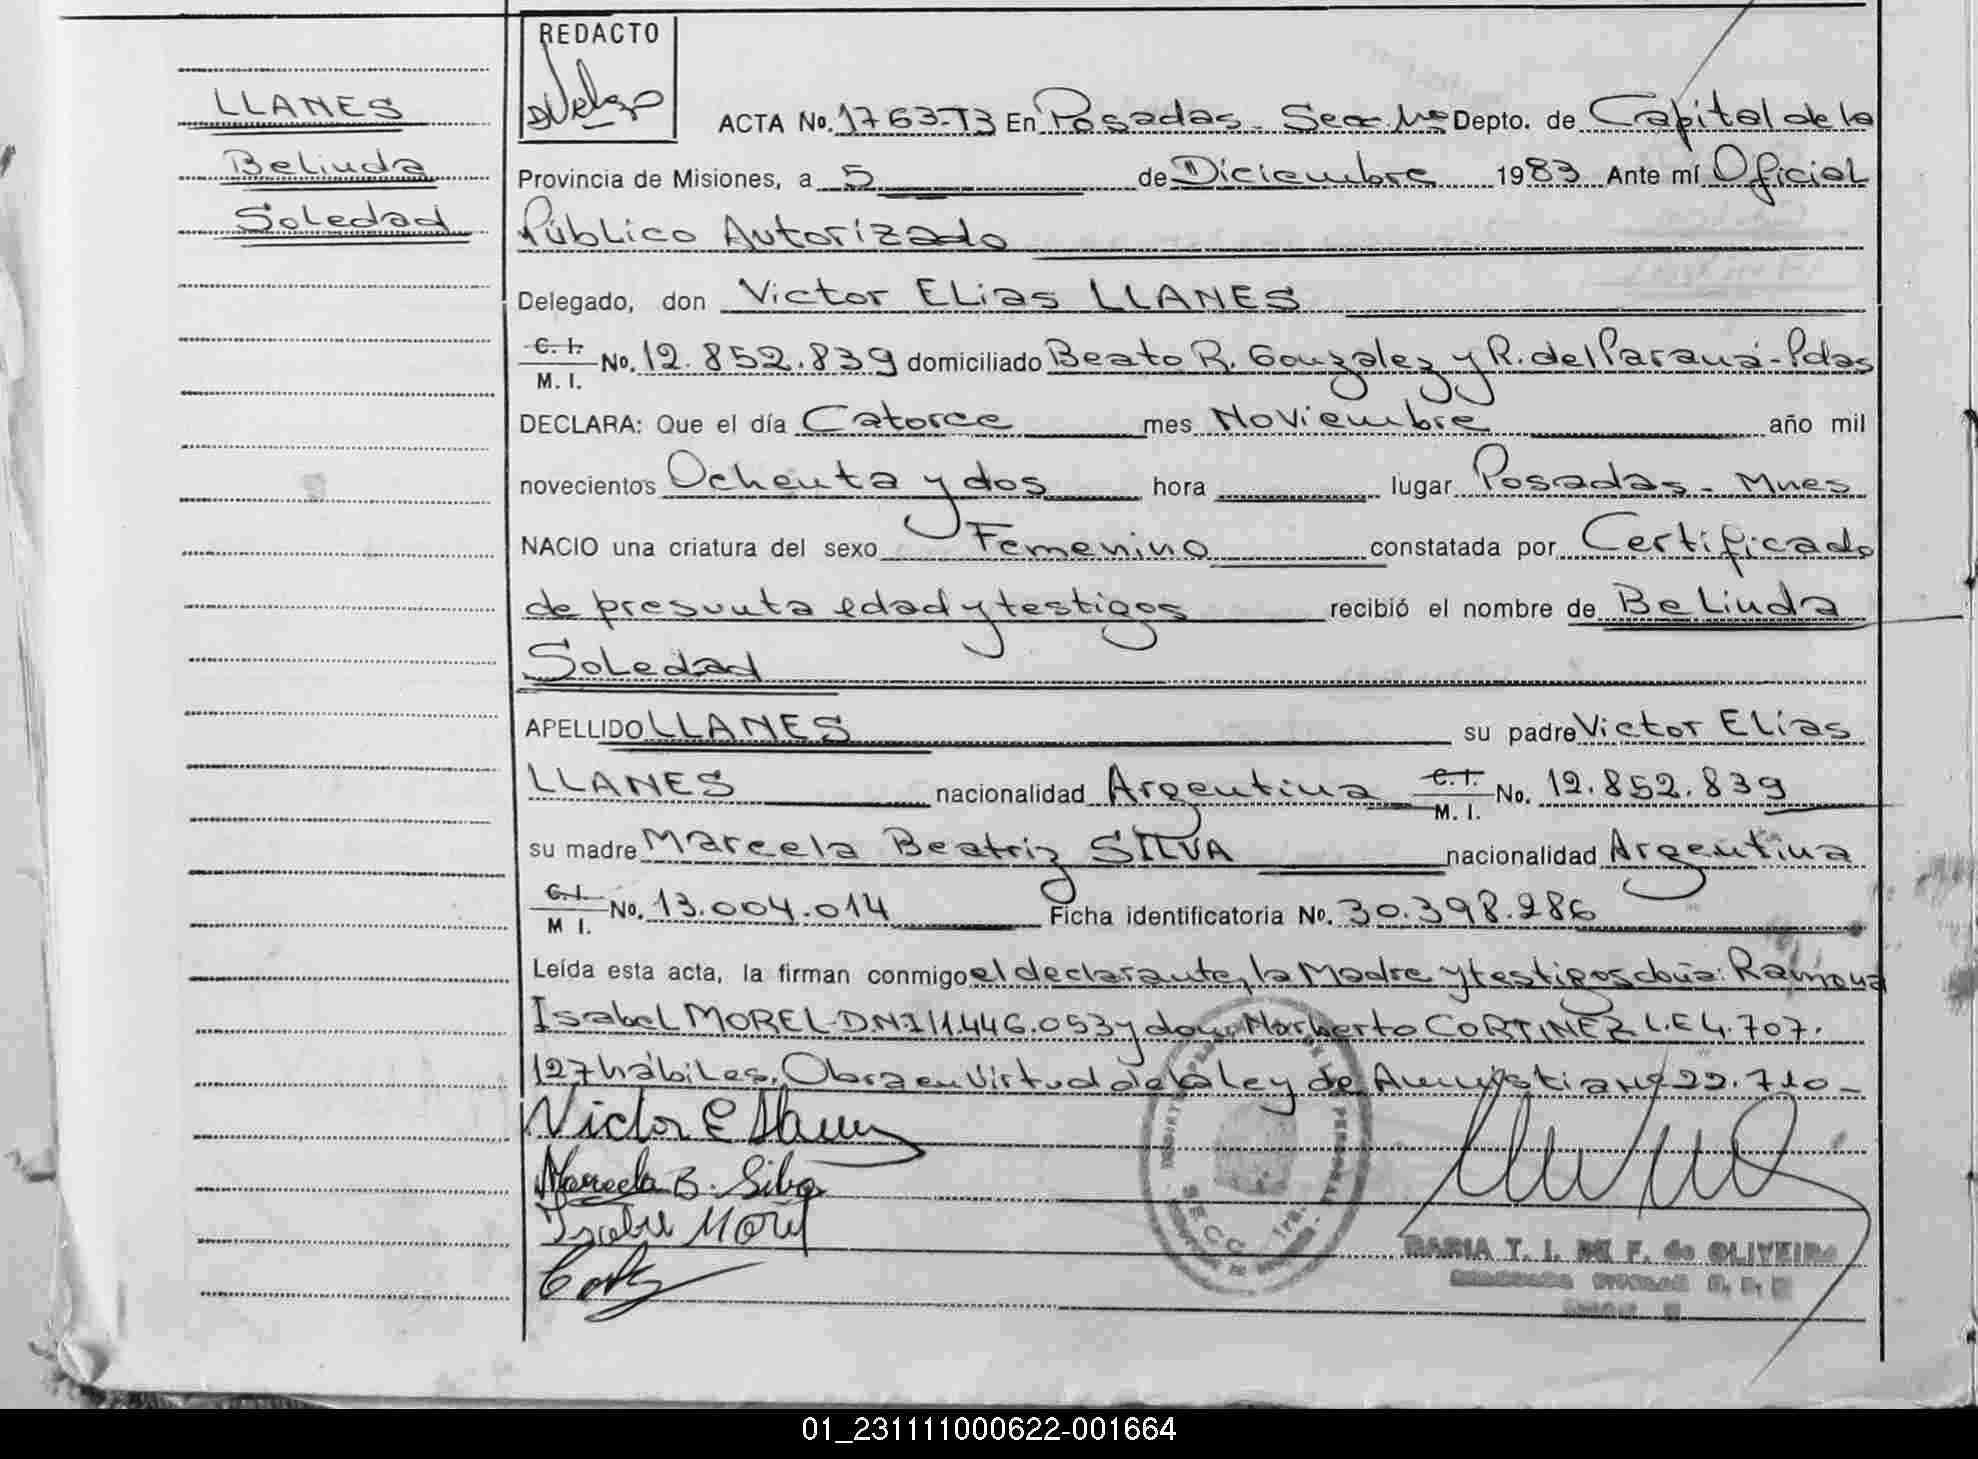 REDACTO
LLANES
Belinda
Soledad
ACTA No. 1763-T3 En Posadas. Secc. Depto. de Capital de la
Provincia de Misiones, a 5 de Diciembre 1983 Ante mí Oficial
Público Autorizado
Delegado, don Victor ELias LLANES
C. I.
M. I. No. 12.852.839 domiciliado Beato R. Gonzalez y R. del Paraná - Pdas
DECLARA: Que el día Catorce mes Noviembre año mil
novecientos Ochenta y dos hora lugar Posadas - Mnes
NACIO una criatura del sexo Femenino constatada por Certificado
de presunta edad y testigos recibió el nombre de BeLinda
SoLedad
APELLIDO LLANES su padre Victor ELías
LLANES nacionalidad Argentina C. I. M. I. No. 12.852.839
su madre Marcela Beatriz SILVA nacionalidad Argentina
C. I. M I. No. 13.004.014 Ficha identificatoria No. 30.398.286
Leída esta acta, la firman conmigo el declarante, la Madre y testigos doña: Ramona
Isabel MOREL D.N.I 11.446.053 y don: Norberto CORTINEZ L.E 4.707.
127 hábiles. Obra en Virtud de la Ley de Amnistia Nº 22.710-
Victor E Llanes
Marcela B. Silva
Isabel Morel
SECC. 1ra.
MARIA T. I. DE F. de OLIVEIRA
01_231111000622-001664